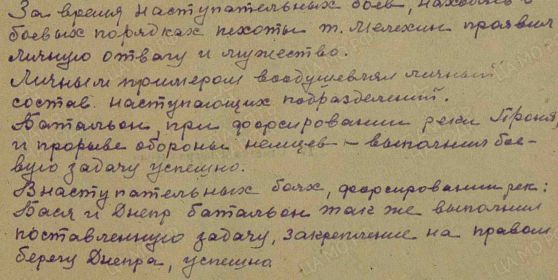 За время наступательных боев, находясь в
боевых порядках пехоты т. Мелехин проявил
личную отвагу и мужество.
Личным примером воодушевлял личный
состав наступающих подразделений.
Батальон, при форсировании реки Проня
и прорыве обороны немцев – выполнил бое-
вую задачу успешно.
В наступательных боях, форсировании рек:
Бася и Днепр батальон так же выполнил
поставленную задачу, закрепление на правом
берегу Днепра, успешно